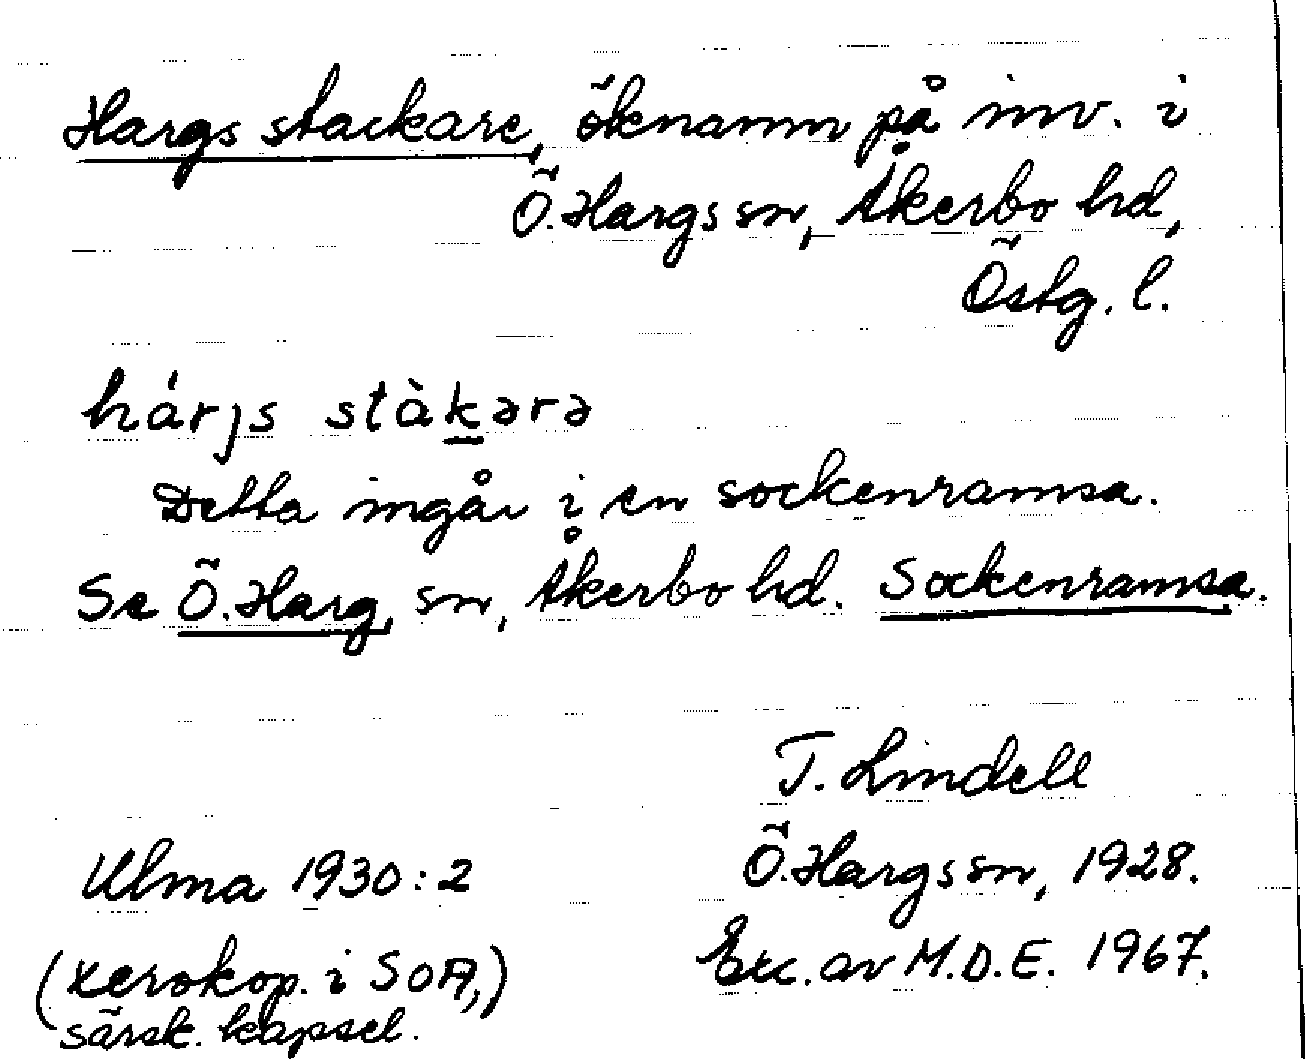 Hargs stackare, öknamn på inv. i
Ö. Hargs sn, Åkerbo hd,
Östg. l.
hárjs stàkərə
Detta ingår i en sockenramsa.
Se Ö. Harg, sn, Åkerbo hd. Sockenramsa.
T. Lindell
Ulma 1930:2 Ö. Hargs sn, 1928.
(xerokop. i SOA, Exc. av M.D.E. 1967.
särsk. kapsel.)